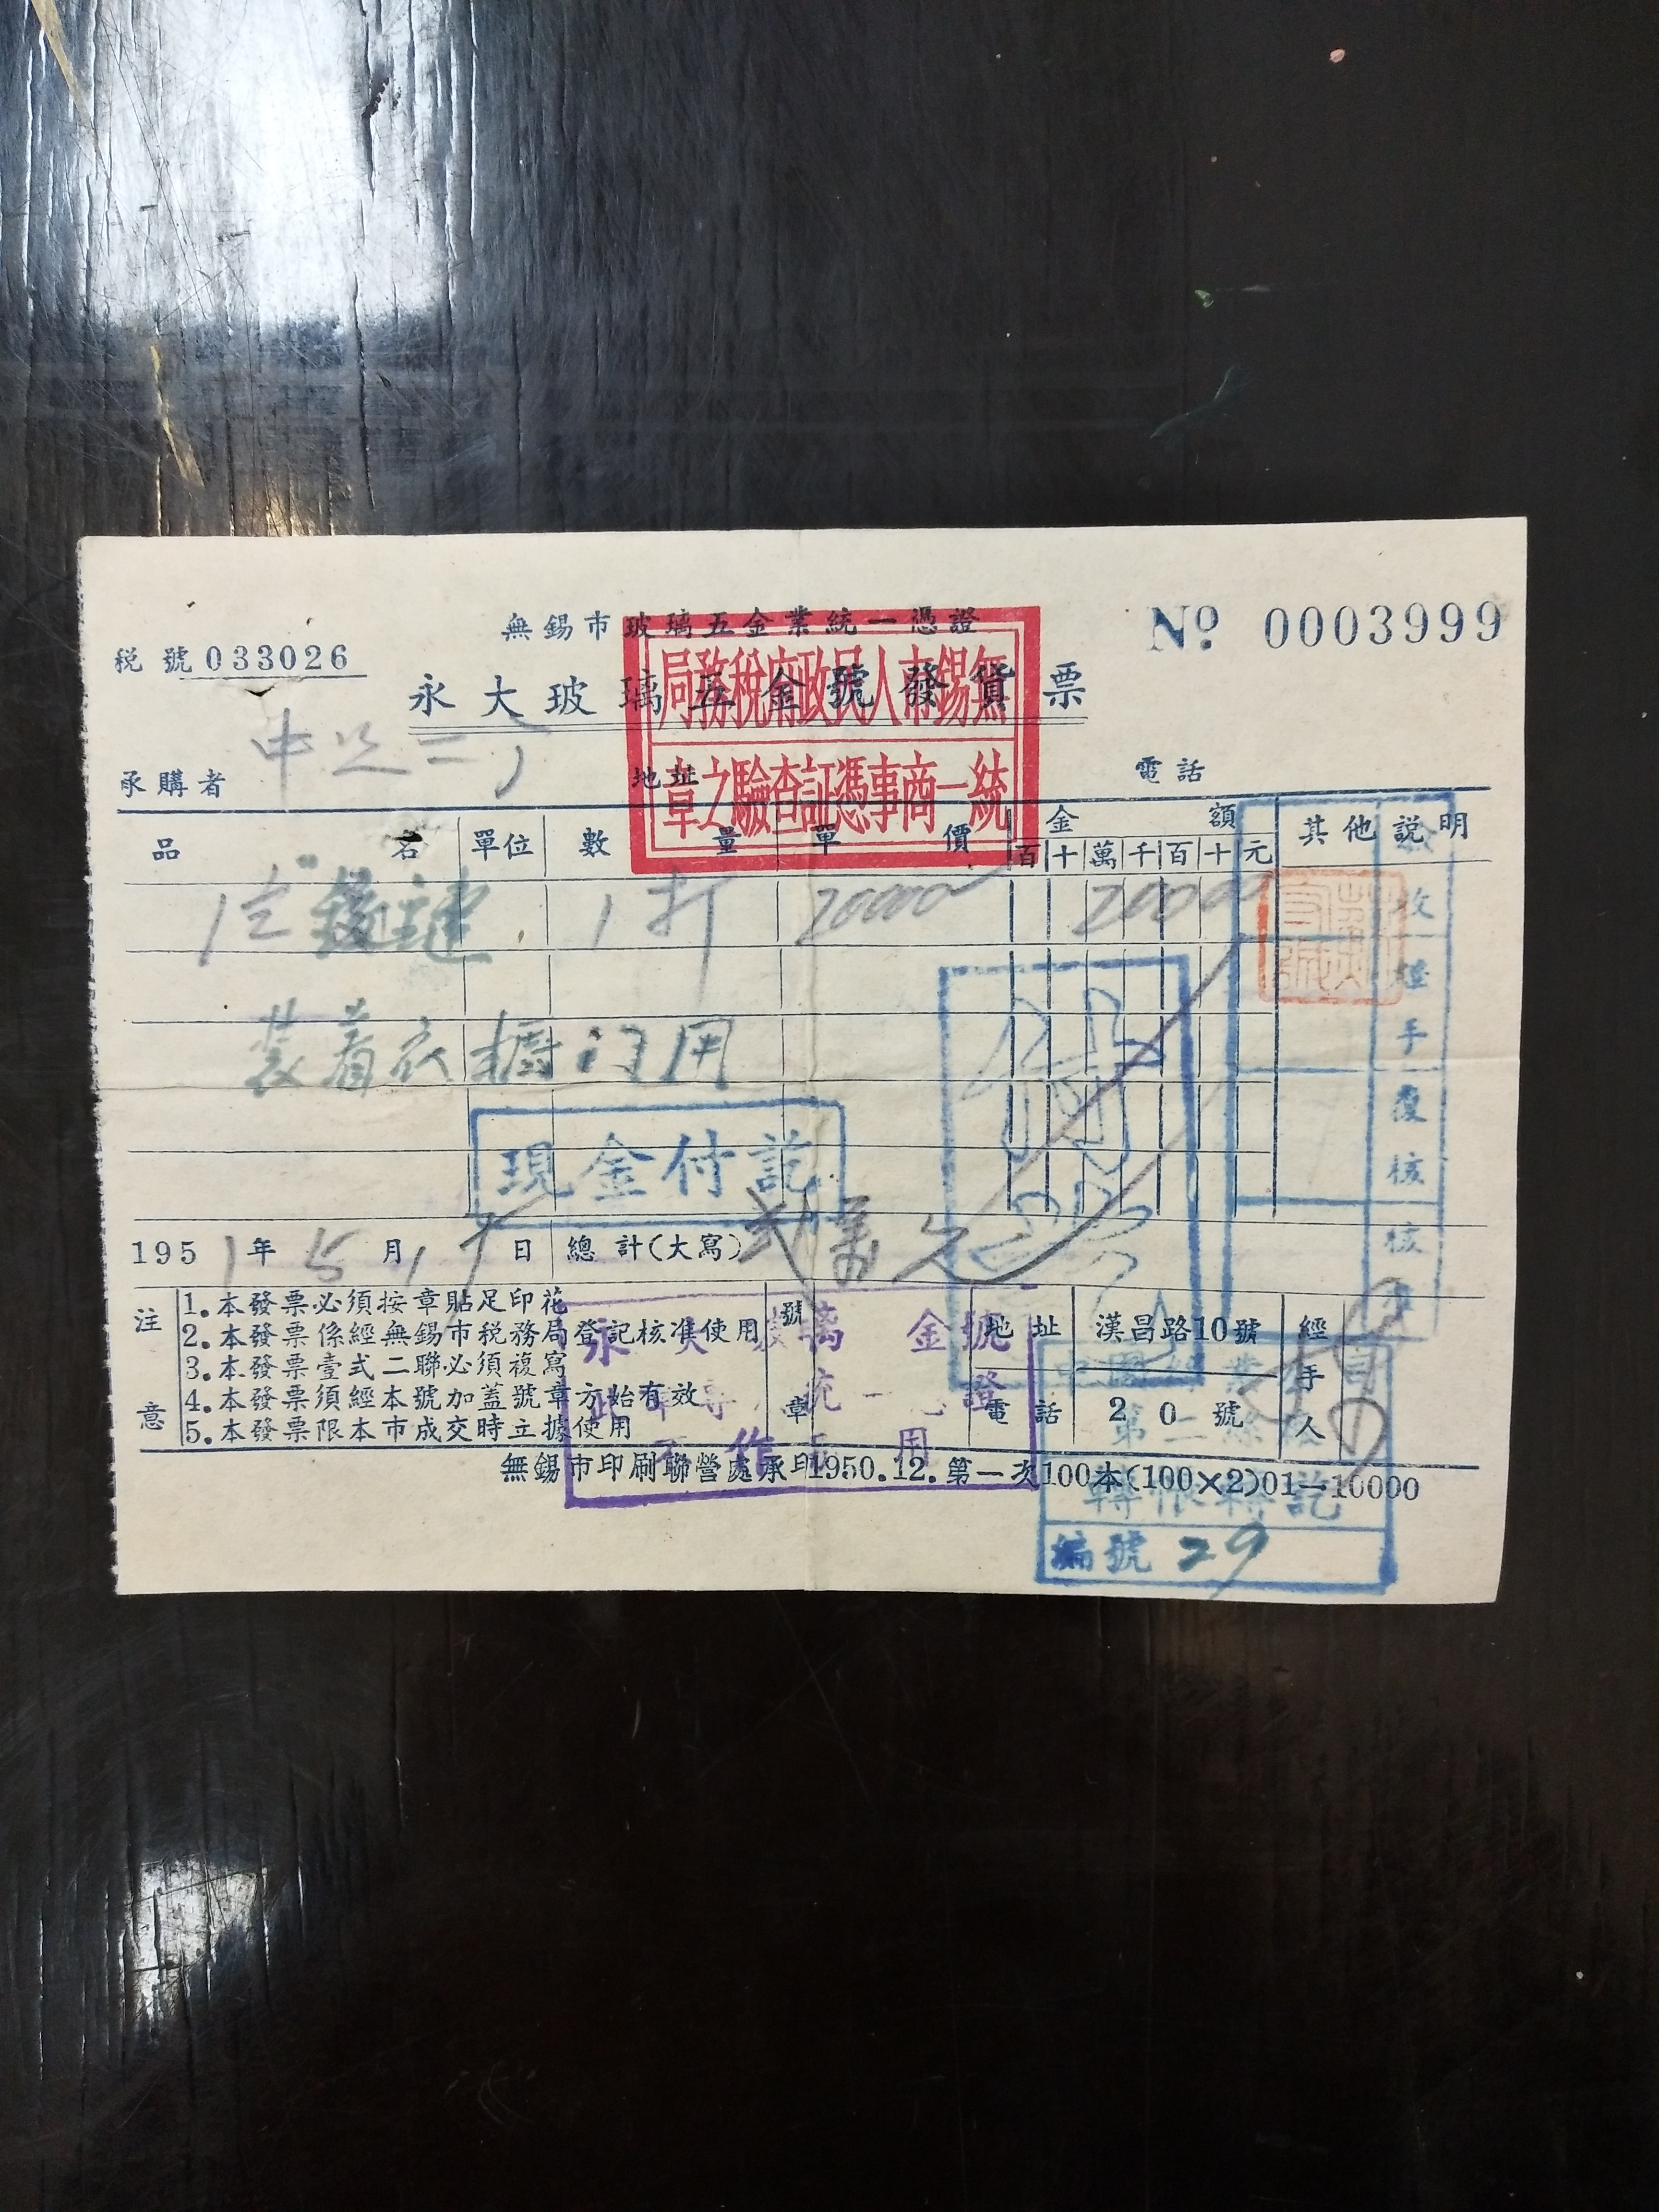 無錫市玻璃五金業統一憑證
№ 0003999
税號 033026
永大玻璃五金號發貨票
局務稅府政民人市錫無
章之驗查証憑事商一統
承購者 中 二
地址
電話
品名 單位 數量 單價 金額 其他說明
百 十 萬 千 百 十 元
1 1打 20000 20000
裝着衣櫥门用
現金付訖
收 經手 覆核
1951年5月17日 總計(大寫) 弍萬元
注意
1.本發票必須按章貼足印花
2.本發票係經無錫市税務局登記核准使用
3.本發票壹式二聯必須複寫
4.本發票須經本號加蓋號章方始有效
5.本發票限本市成交時立據使用
號章
永 璃 金號
統一 證
作 用
地址 漢昌路10號
電話 20號
經手人
無錫市印刷聯營處承印1950.12.第一次100本(100×2)01—10000
第二
轉訖
編號 29